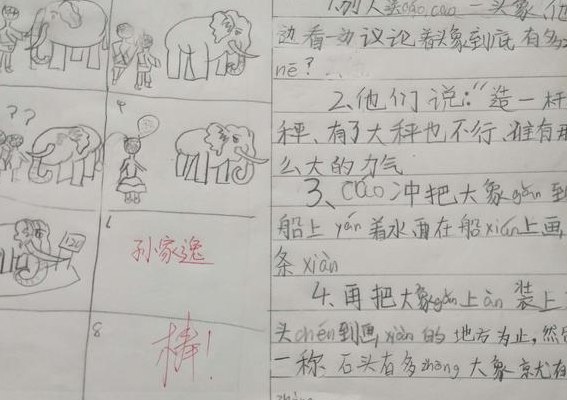 ??
4
7
孙家逸
8
棒!
1.别人送cáo cao 一头象,他
边看一边议论着象到底有多
nē?……
2.他们说:“造一杆
秤、有了大秤也不行,谁有那
么大的力气
3、cāo冲把大象gǎn到
船上 yán着水面在船xián上画
条xiàn
4.再把大象gǎn上àn 装上
头chén到画xiàn的地方为止,然
一称 石头有多zhòng 大象京尤有